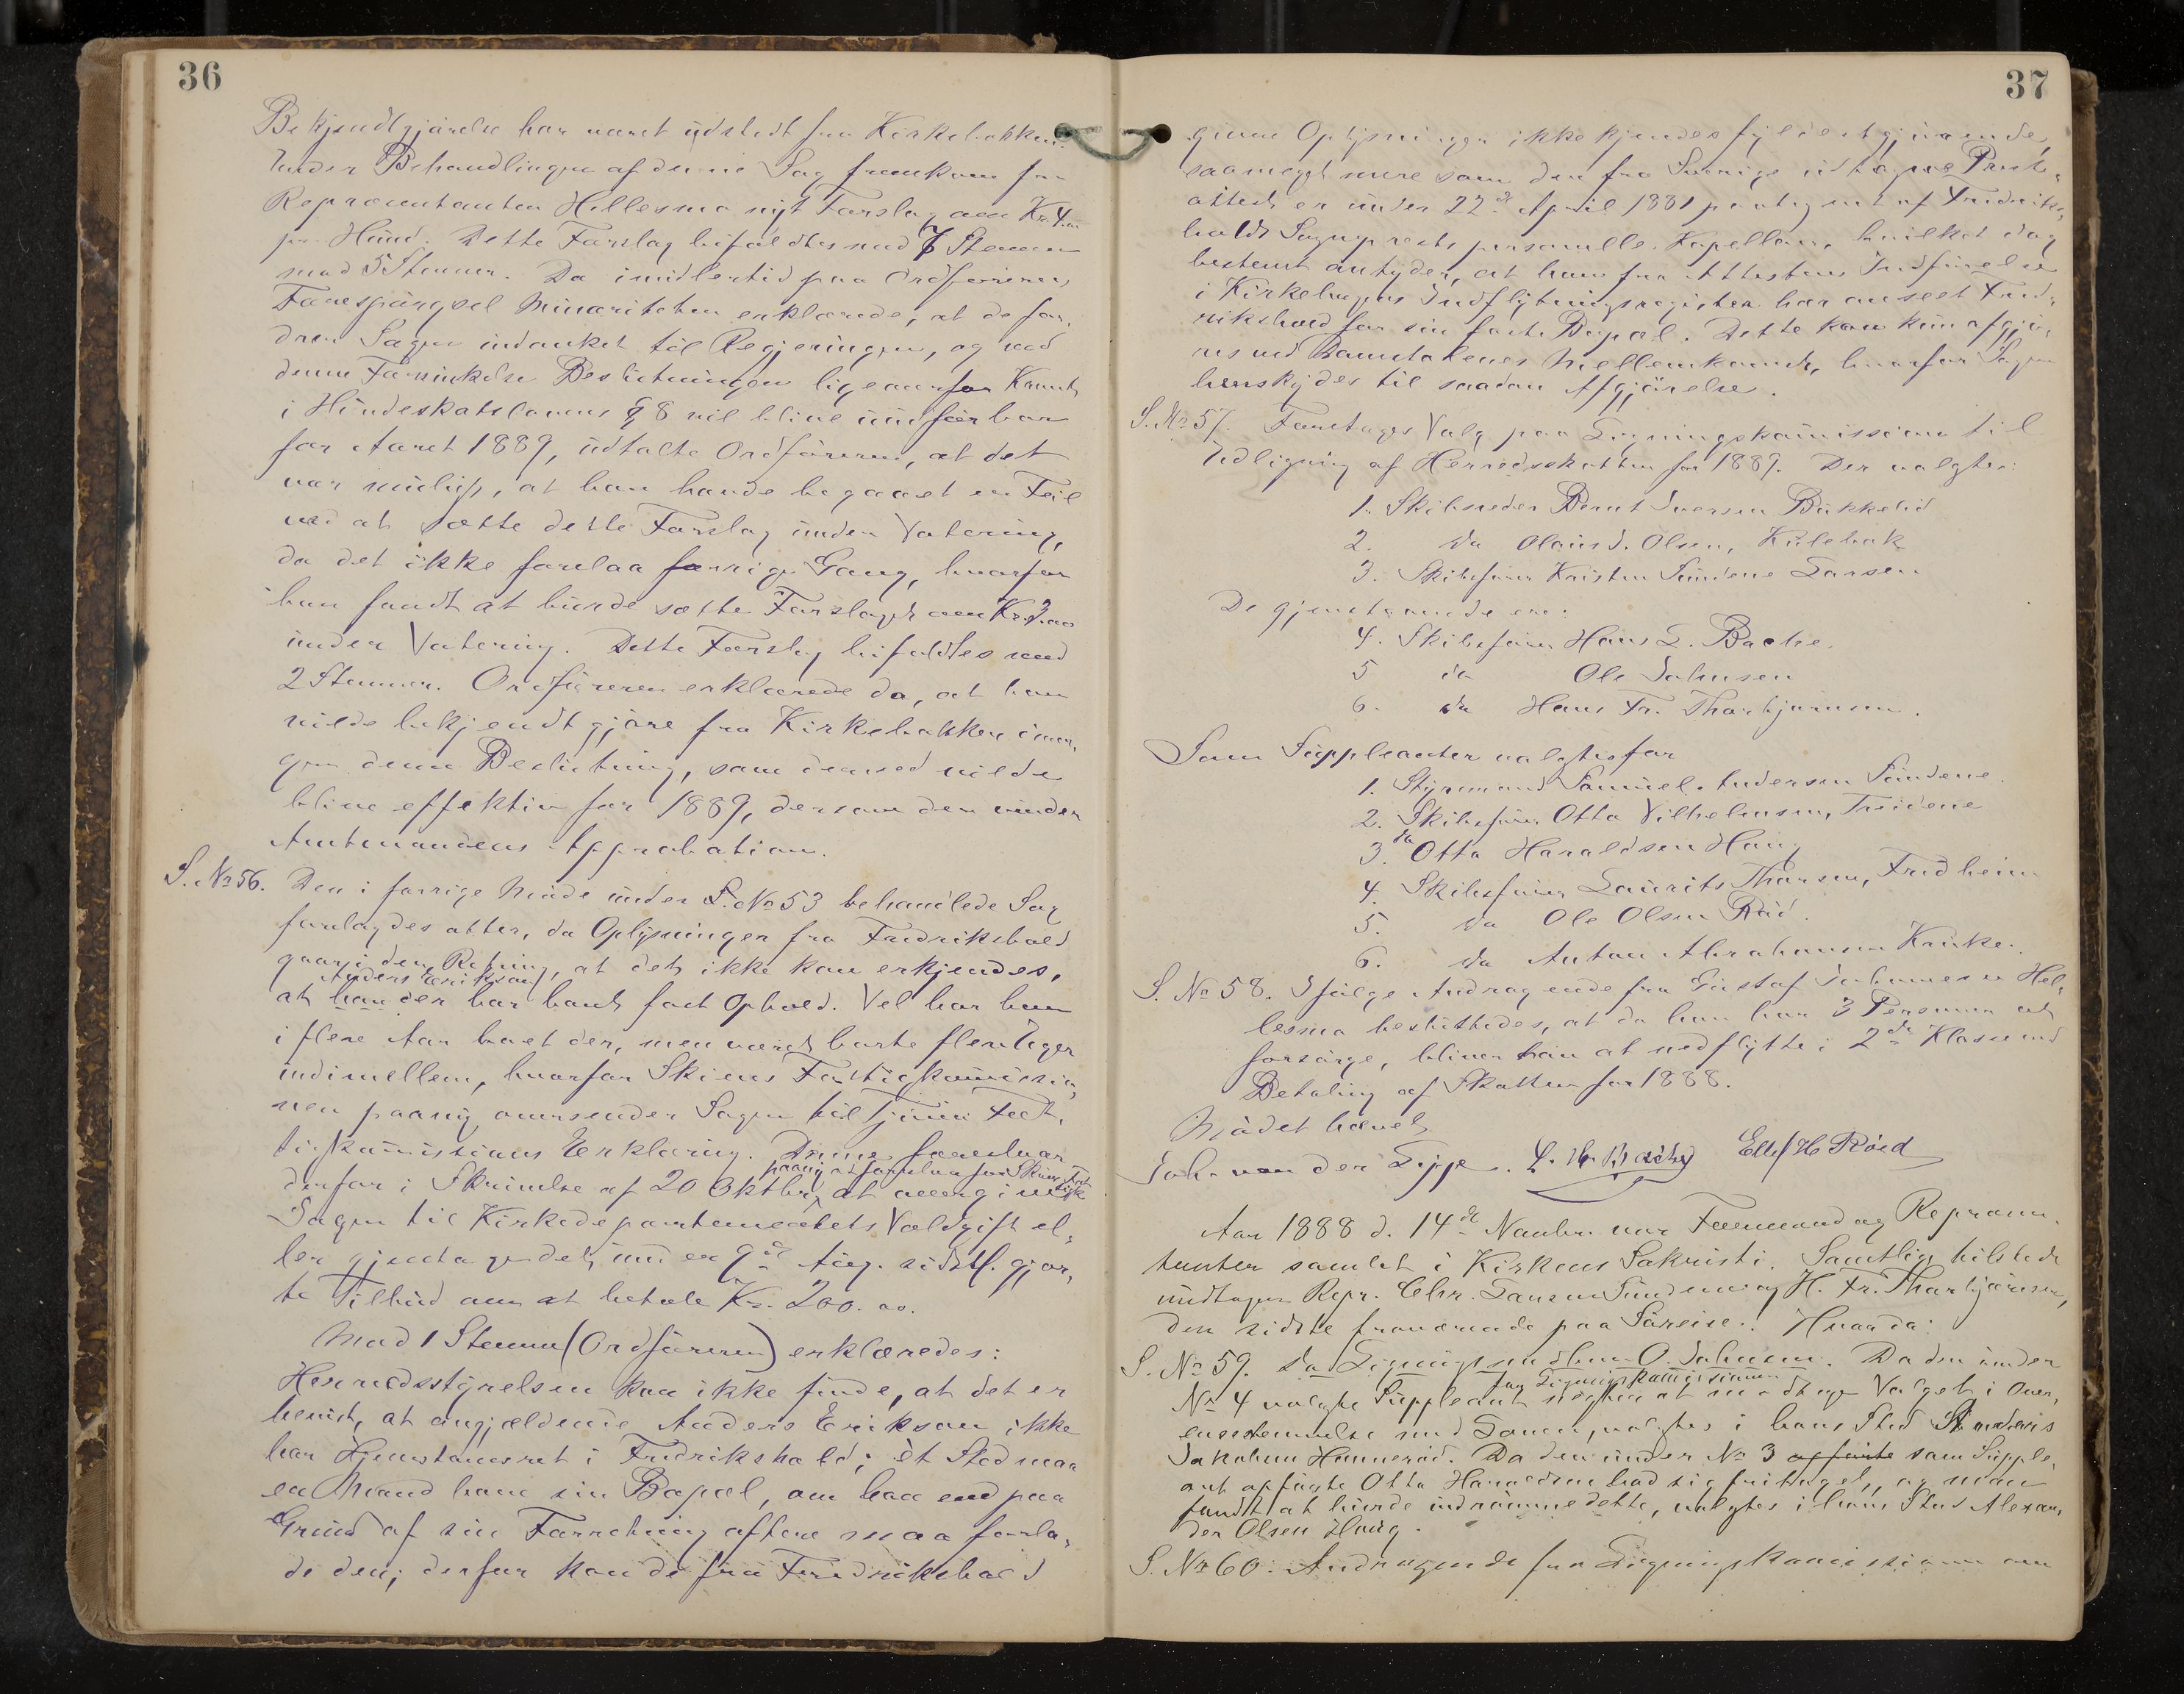 36
Bekjendtgjørelse har været udstedt fra Kirkebakken.
Under Behandlingen af denne Sag fremkom fra
Repræsentanten Hellesmo nyt Forslag om Kr. 4.00
pr. Hund. Dette Forslag bifaldtes med 7 Stemmer
mod 5 Stemmer. Da imidlertid paa Ordførerens
Forespørgsel Minoriteten erklærede, at de for-
drer Sagen indanket til Regjeringen, og ved
denne Forsinkelse Beslutningen ligeoverfor Kravet
i Hundeskatslovens § 8 vil blive uudførbar
for Aaret 1889, udtalte Ordføreren, at det
var muligt, at han havde begaaet en Feil
ved at sætte dette Forslag under Votering,
da det ikke forelaa forrige Gang, hvorfor
han fandt at burde sætte Forslaget om Kr. 3.00
under Votering. Dette Forslag bifaldtes med
2 Stemmer. Ordføreren erklærede da, at han
vilde bekjendtgjøre fra Kirkebakken imor-
gen denne Beslutning, som dermed vilde
blive effektiv for 1889, dersom den vinder
Amtmandens Approbation.
S. No 56. Den i forrige Møde under S. No 53 behandlede Sag
forelagdes atter, da Oplysningen fra Fredrikshald
gaar i den Retning, at det ikke kan erkjendes,
Anders Erikson
at han der har havt fast Ophold. Vel har han
i flere Aar boet der, men været borte flere Uger
indimellem, hvorfor Skiens Fattigkommissio-
nen paany oversender Sagen til Tjømø Fat-
tigkommissions Erklæring. Denne foreslaar
paany at foreslaa for Skiens Fattigk
derfor i Skrivelse af 20 Oktbr, at overgive
Sagen til Kirkedepartementets Voldgift el-
ler gjentagendet under 9de Aug. sidstl. gjor-
te Tilbud om at betale Kr. 200.00.
Mod 1 Stemme (Ordføreren) erklæredes:
Herredsstyrelsen kan ikke finde, at det er
bevist, at angjældende Anders Erikson ikke
har Hjemstavnsret i Fredrikshald; èt Sted maa
en Mand have sin Bopæl, om han end paa
Grund af sin Forretning oftere maa forla-
de den; derfor kan de fra Fredrikshald
37
givne Oplysninger ikke kjendes fyldestgjørende,
saameget mere som den fra Sverige udtagne Preste-
attest er under 22de April 1881 paategnet af Fredriks-
halds Sogneprests personelle Kapellan, hvilket dog
bestemt antyder, at han fra Attestens Indførelse
i Kirkebogens Indflytningsregister har anseet Fred-
rikshald for sin faste Bopæl. Dette kan kun afgjø-
res ved Domstolenes Mellemkomst, hvorfor Sagen
henskydes til saadan Afgjørelse.
S. No 57. Foretages Valg paa Ligningskommission til
Udligning af Herredsskatten for 1889. Der valgtes:
1. Skibsreder Bernt Iversen Bukkelid
2. do Olaus J. Olsen, Kulebak
3. Skibsfører Kristen Sundene Larsen
De gjenstaaende ere:
4. Skibsfører Hans L. Bache.
5 do Ole Johnsen
6. do Hans Fr. Thorbjørnsen.
Som Suppleanter valgtes for
1. Styrmand Samuel Andersen Sundene.
2. Skibsfører Otto Vilhelmsen, Treidene
3. do Otto Haraldsen Haug
4. Skibsfører Laurits Thorsen, Fredheim
5. do Ole Olsen Röd.
6. do Anton Abrahamsen Kruke.
S. No 58. Ifølge Andragende fra Gustaf Johannesen Hel-
lesmo besluttedes, at da han har 3 Personer at
forsørge, bliver han at nedflytte i 2den Klasse ved
Betaling af Skatten for 1888.
Mødet hævet
Joh. von der Lippe. L. H. Bache Ellef H Röed
Aar 1888 d. 14de Novbr. var Formænd og Repræsen-
tanter samlet i Kirkens Sakristi. Samtlige tilstede
undtagen Repr. Chr. Larsen Sundene og H. Fr. Thorbjørnsen,
den sidste fraværende paa Söreise. Hvorda:
S. No 59. da Ligningsmedlem O. Johnsen. Da den under
for Ligningskommissionen
No 4 valgte Suppleant negter at modtage Valget i Over-
ensstemmelse med Loven, valgtes i hans Sted Skomaker
Jakobsen Honneröd. Da den under No 3 opførte som Supple-
ant opførte Otto Haraldsen bad sig fritaget, og man
fandt at burde indrømme dette, valgtes i hans Sted Alexan-
der Olsen Haug.
S. No 60. Andragende fra Ligningskommissionen om